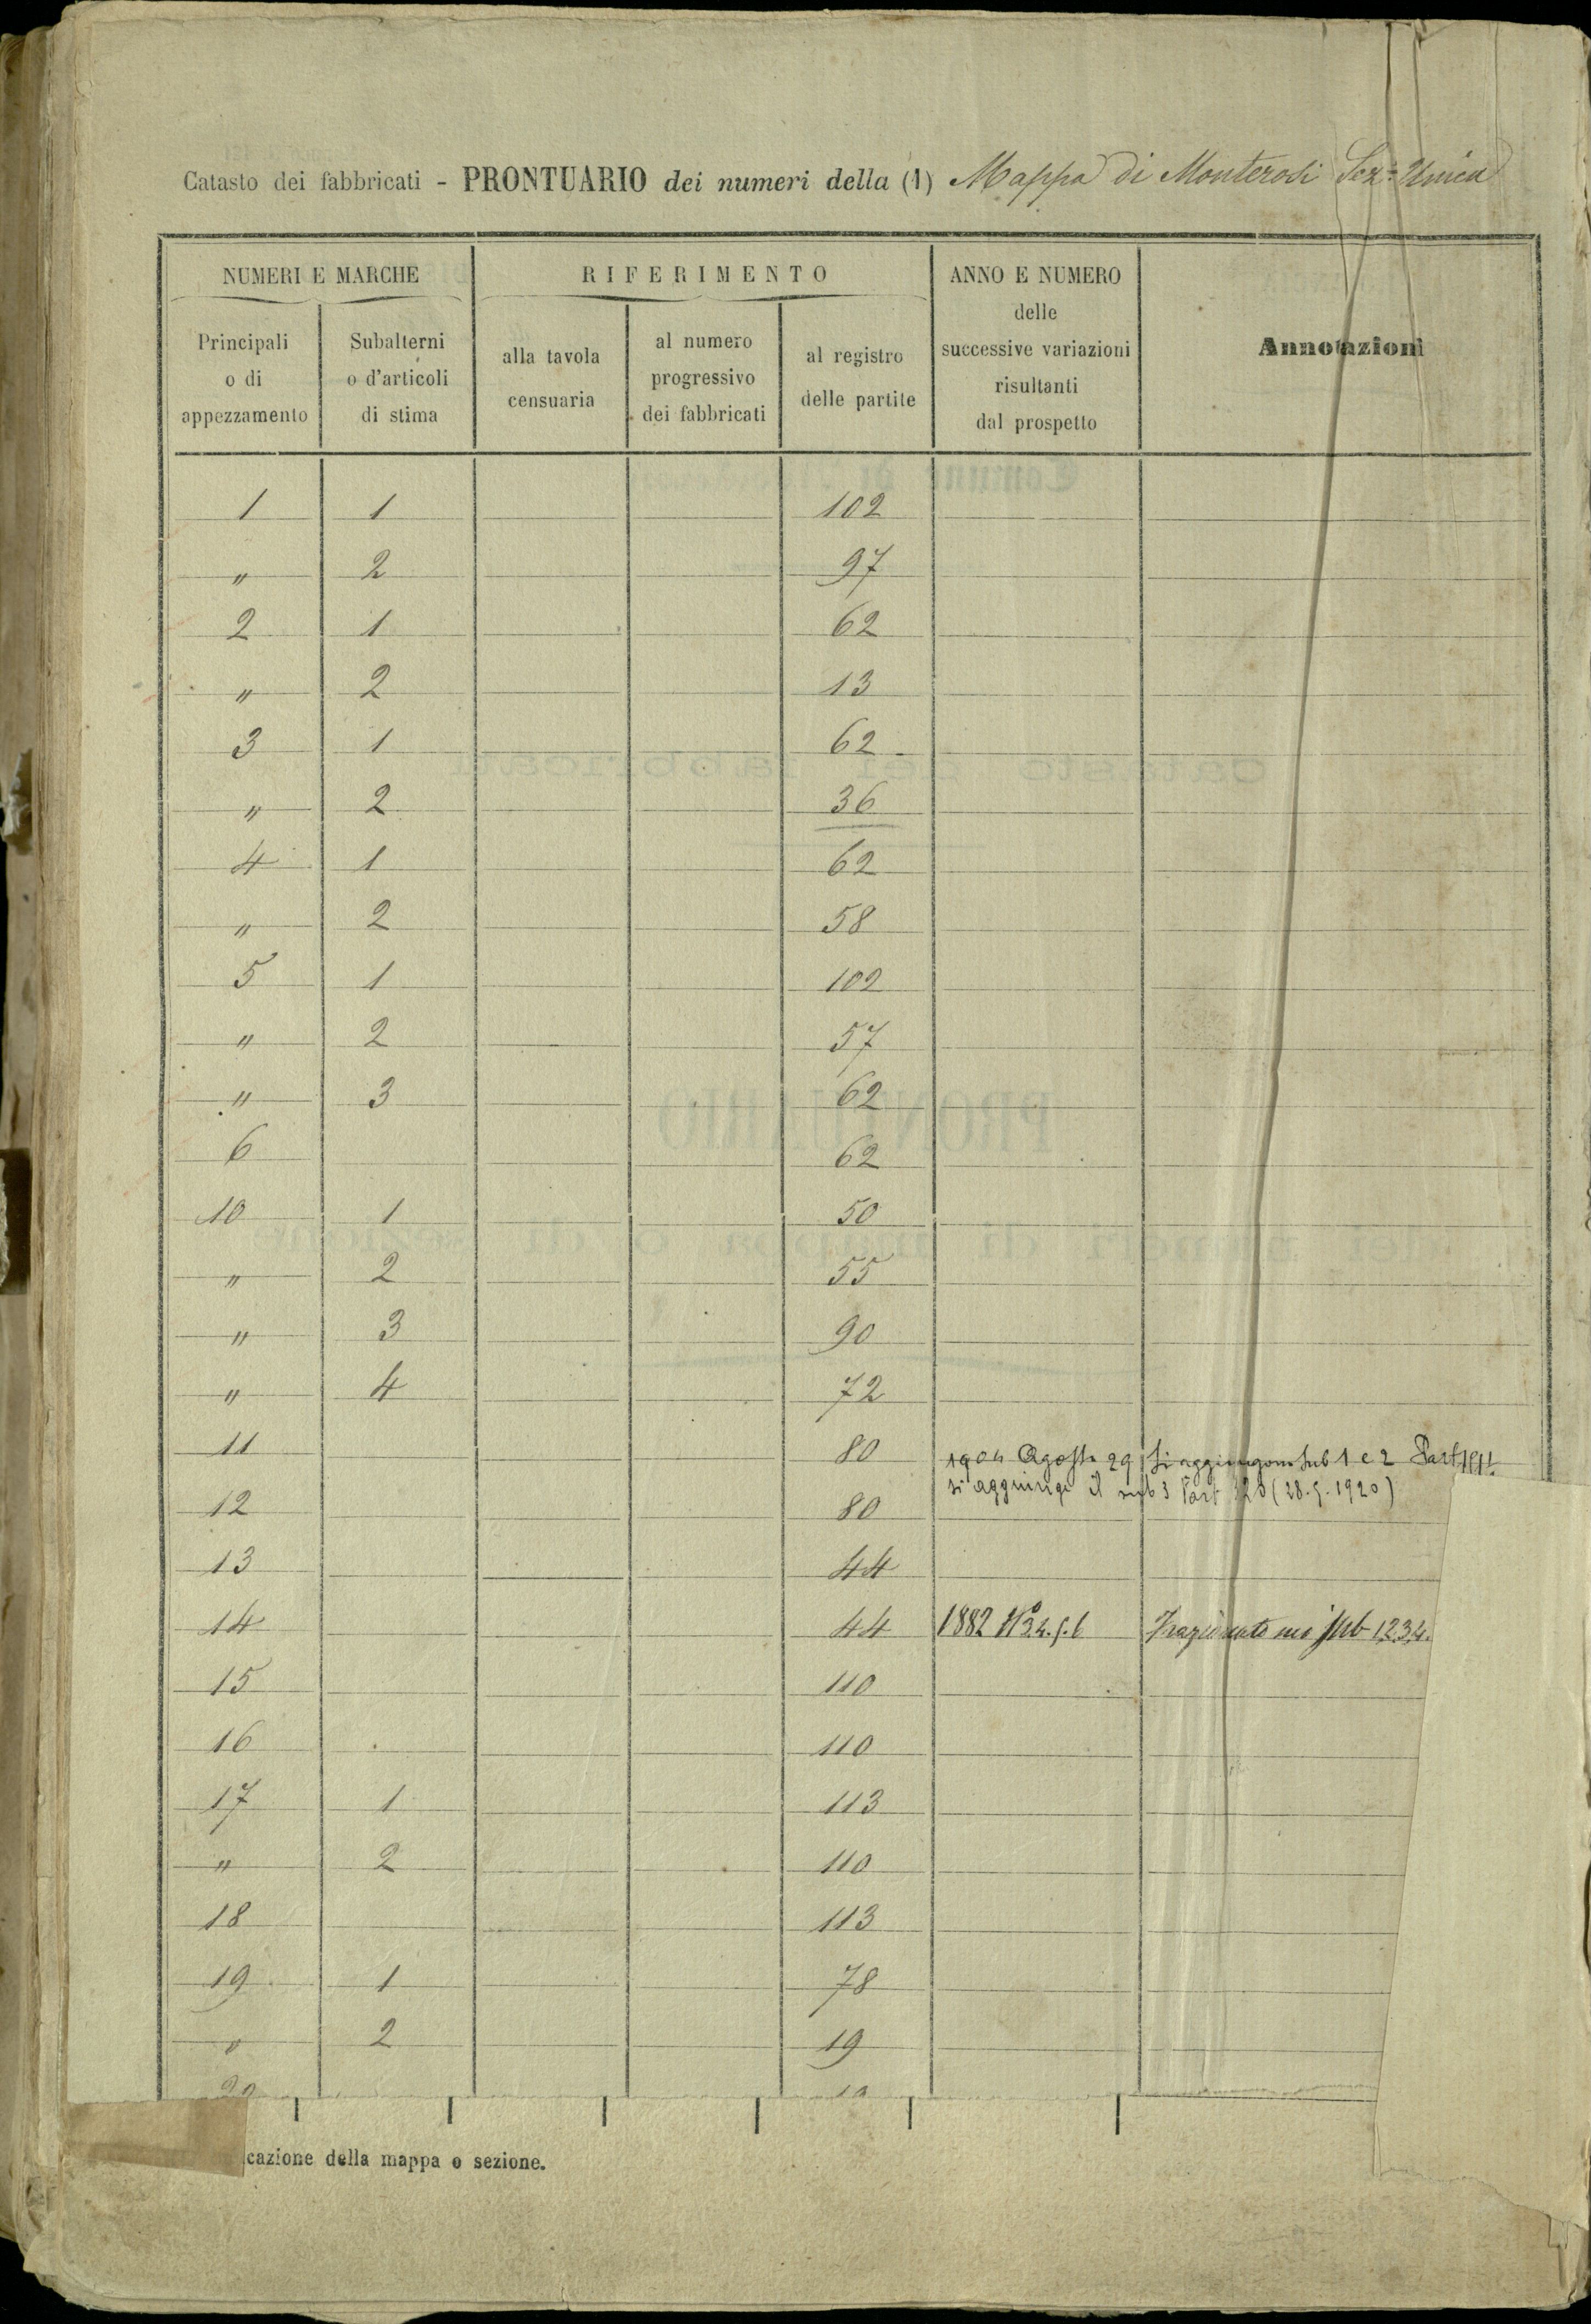 Catasto dei fabbricati - PRONTUARIO dei numeri della (1) Mappa di Monterosi Sez.e Unica
NUMERI E MARCHE RIFERIMENTO ANNO E NUMERO delle successive variazioni risultanti dal prospetto Annotazioni
Principali o di appezzamento Subalterni o d'articoli di stima alla tavola censuaria al numero progressivo dei fabbricati al registro delle partite
1 1 102
" 2 97
2 1 62
" 2 13
3 1 62
" 2 36
4 1 62
" 2 58
5 1 102
" 2 57
" 3 62
6 62
10 1 50
" 2 55
" 3 90
" 4 72
11 80 1904 Agosto 29 Si aggiungono Sub 1 e 2 Part
si aggiunge il sub 3 Part (28.5.1920)
12 80
13 44
14 44 1882 Nº 3.4.5.6 Frazionato nei sub 1234.
15 110
16 110
17 1 113
" 2 110
18 113
19 1 78
" 2 19
20
cazione della mappa o sezione.